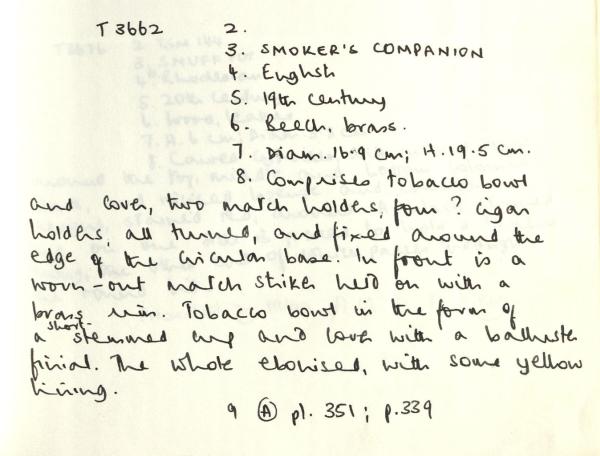 T 3662 2.
3. SMOKER'S COMPANION
4. English
5. 19th century
6. Beech, brass.
7. Diam. 16.9 cm; H. 19.5 cm.
8. Comprises tobacco bowl
and cover, two match holders, four ? cigar
holders, all turned, and fixed around the
edge of the circular base. In front is a
worn-out match striker held on with a
brass rim. Tobacco bowl in the form of
a short-stemmed cup and cover with a baluster
finial. The whole ebonised, with some yellow
lining.
9 (A) pl. 351; p. 339